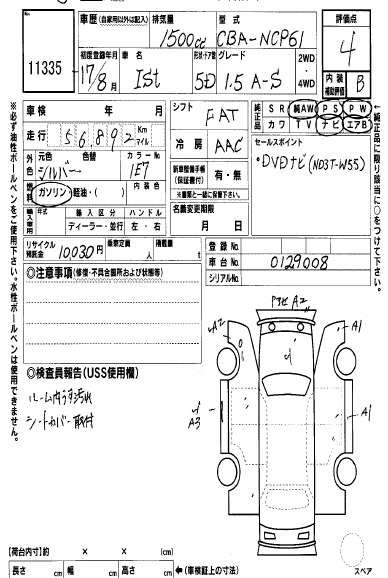 11335
車歴(自家用以外は記入) 排気量 型式
1500cc CBA-NCP61
初度登録年月 車名 形状・ドア数 グレード 2WD・4WD
17/8月 Ist 5D 1.5 A-S
評価点
4
内装補助評価
B
車検 年 月
走行 56892 Km マイル
外色 元色 色替 カラーNo
シルバー 1E7
内装色
燃料 ガソリン 軽油・( )
輸入車用 年式 輸入区分 ハンドル
ディーラー・並行 左・右
リサイクル預託金 10030円 乗車定員 人 積載量 t
シフト FAT
冷房 AAC
新車整備手帳(保証書付) 有・無
※一緒に保管して下さい。
名義変更期限
月 日
純正品 SR 純AW PS PW
カワ TV ナビ エアB
セールスポイント
・DVDナビ(ND3T-W55)
登録No.
車台No. 0129008
シリアルNo.
※必ず油性ボールペンをご使用下さい。水性ボールペンは使用できません。
←純正品に限り該当に○をつけて下さい。
◎注意事項(修復・不具合箇所および状態等)
◎検査員報告(USS使用欄)
ルーム内うす汚れ
シートカバー取付
A2
A2
A1
A3
A1
【荷台内寸】約 × × (cm)
長さ cm 幅 cm 高さ cm ←(車検証上の寸法)
スペア